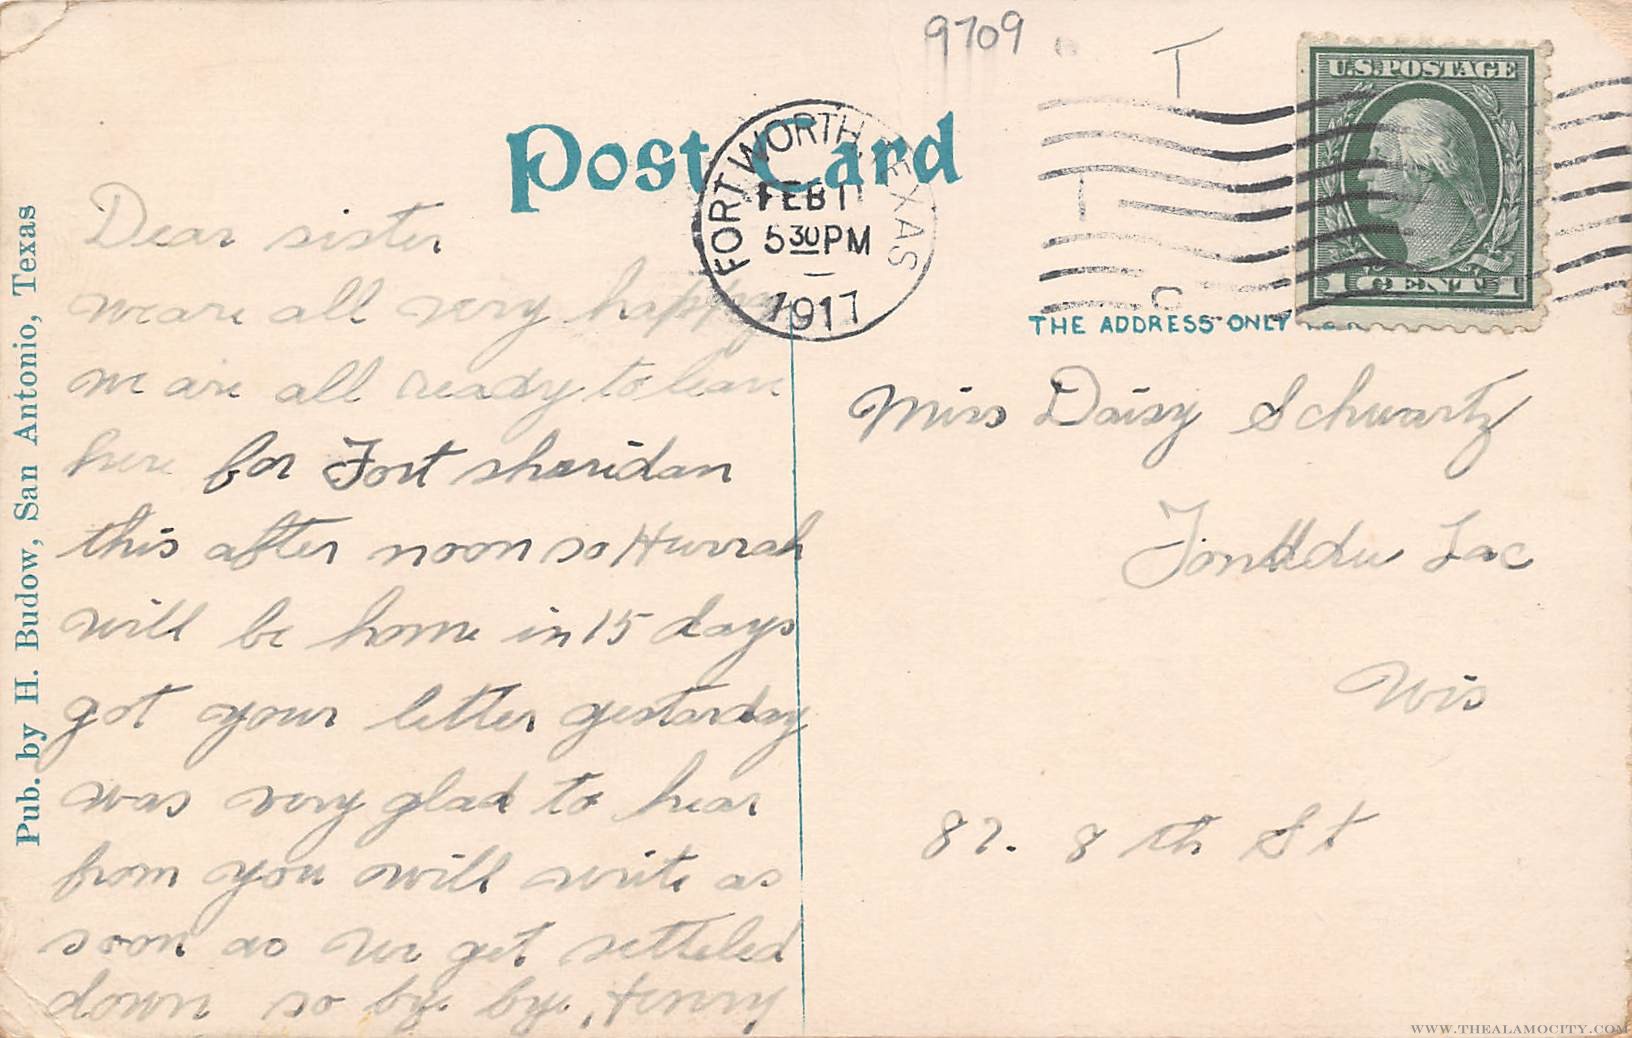 9709
U.S. POSTAGE
1 CENT 1
Post Card
FORT WORTH, TEXAS
FEB 11
5 30 PM
1917
THE ADDRESS ONLY
Pub. by H. Budow, San Antonio, Texas
Dear sister
we are all very happy
we are all ready to leave
here for Fort sheridan
this after noon so Hurrah
will be home in 15 days
got your letter yestarday
was very glad to hear
from you will write as
soon as we get setteled
down so by. by. Henry
Miss Daisy Schwartz
Fond du Lac
Wis
87. 8 th St
WWW.THEALAMOCITY.COM